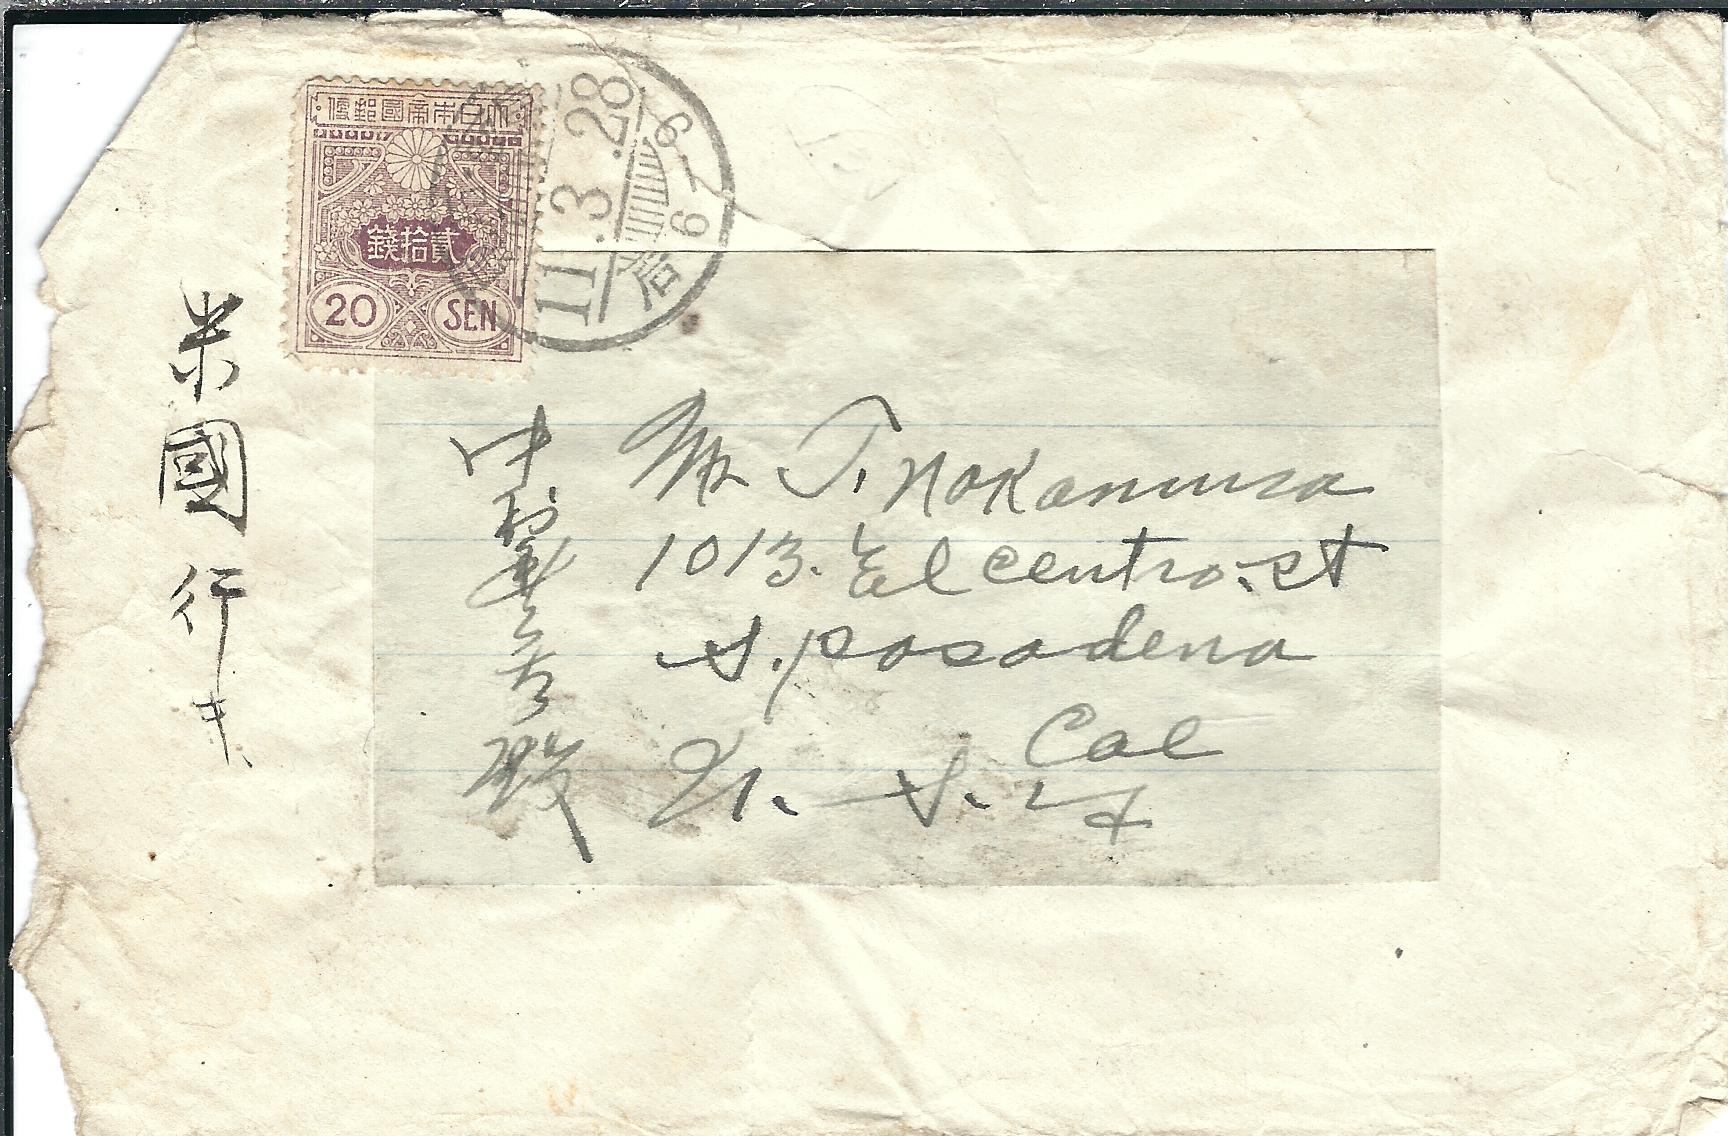 大日本帝國郵便
貳拾錢
20 SEN
11.3.28
后 6-9
米國行き
中村
殿
Mr T. Nakamura
1013. El centro. st
S. pasadena
Cal
U. S. A